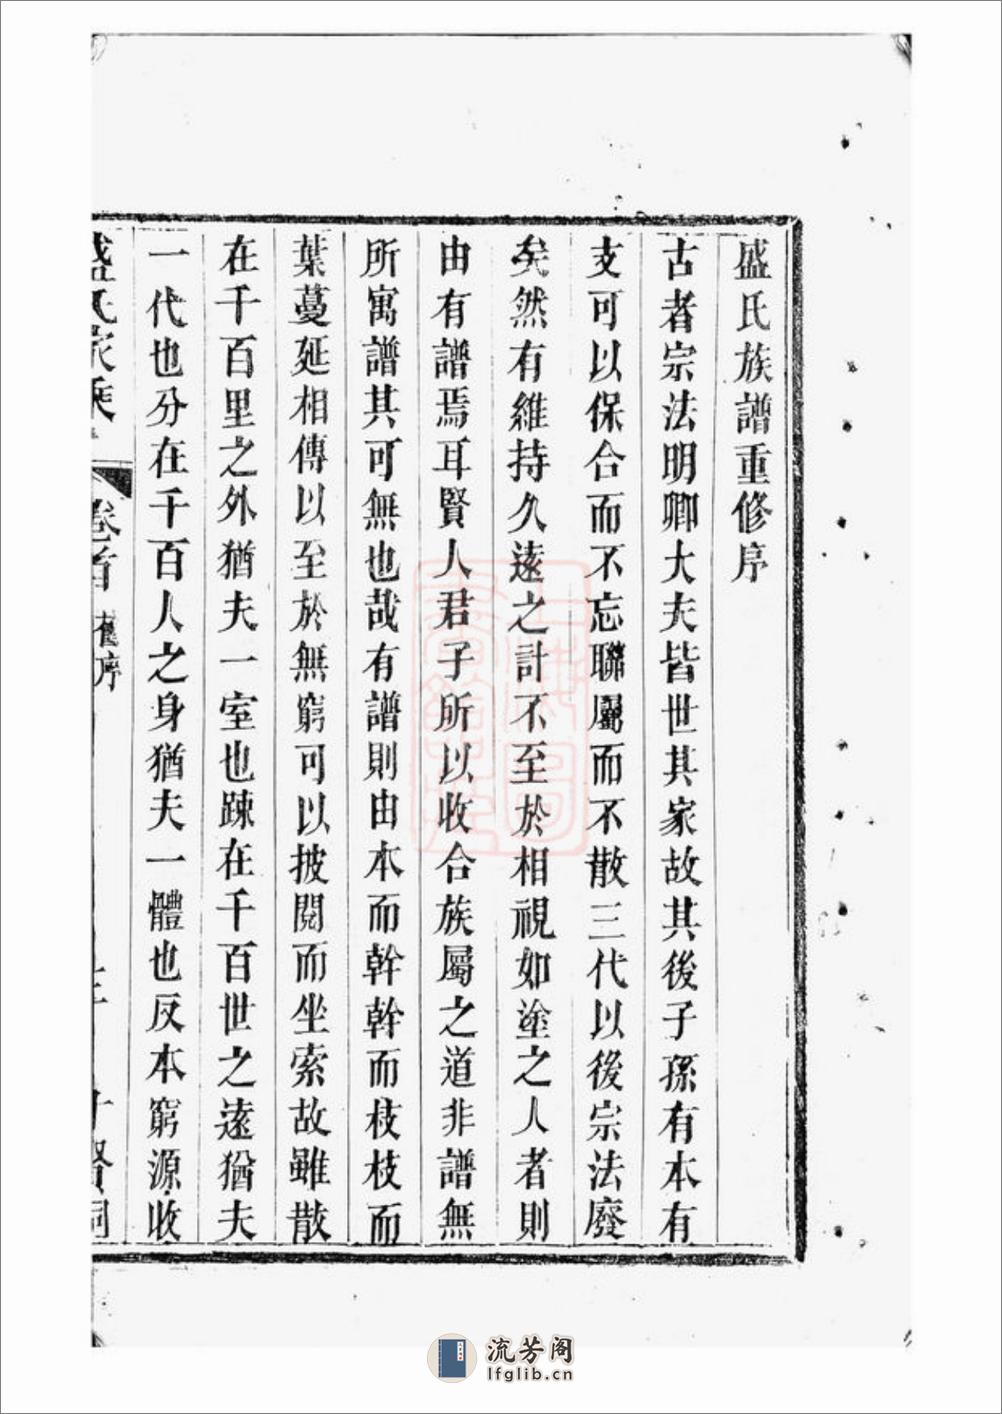 盛氏族譜重修序
古者宗法明卿大夫皆世其家故其後子孫有本有
支可以保合而不忘聯屬而不散三代以後宗法廢
矣然有維持久遠之計不至於相視如塗之人者則
由有譜焉耳賢人君子所以收合族屬之道非譜無
所寓譜其可無也哉有譜則由本而幹幹而枝枝而
葉蔓延相傳以至於無窮可以披閱而坐索故雖散
在千百里之外猶夫一室也踈在千百世之遠猶夫
一代也分在千百人之身猶夫一體也反本窮源收
盛氏家乘 卷首 舊序
流芳阁
lfglib.cn